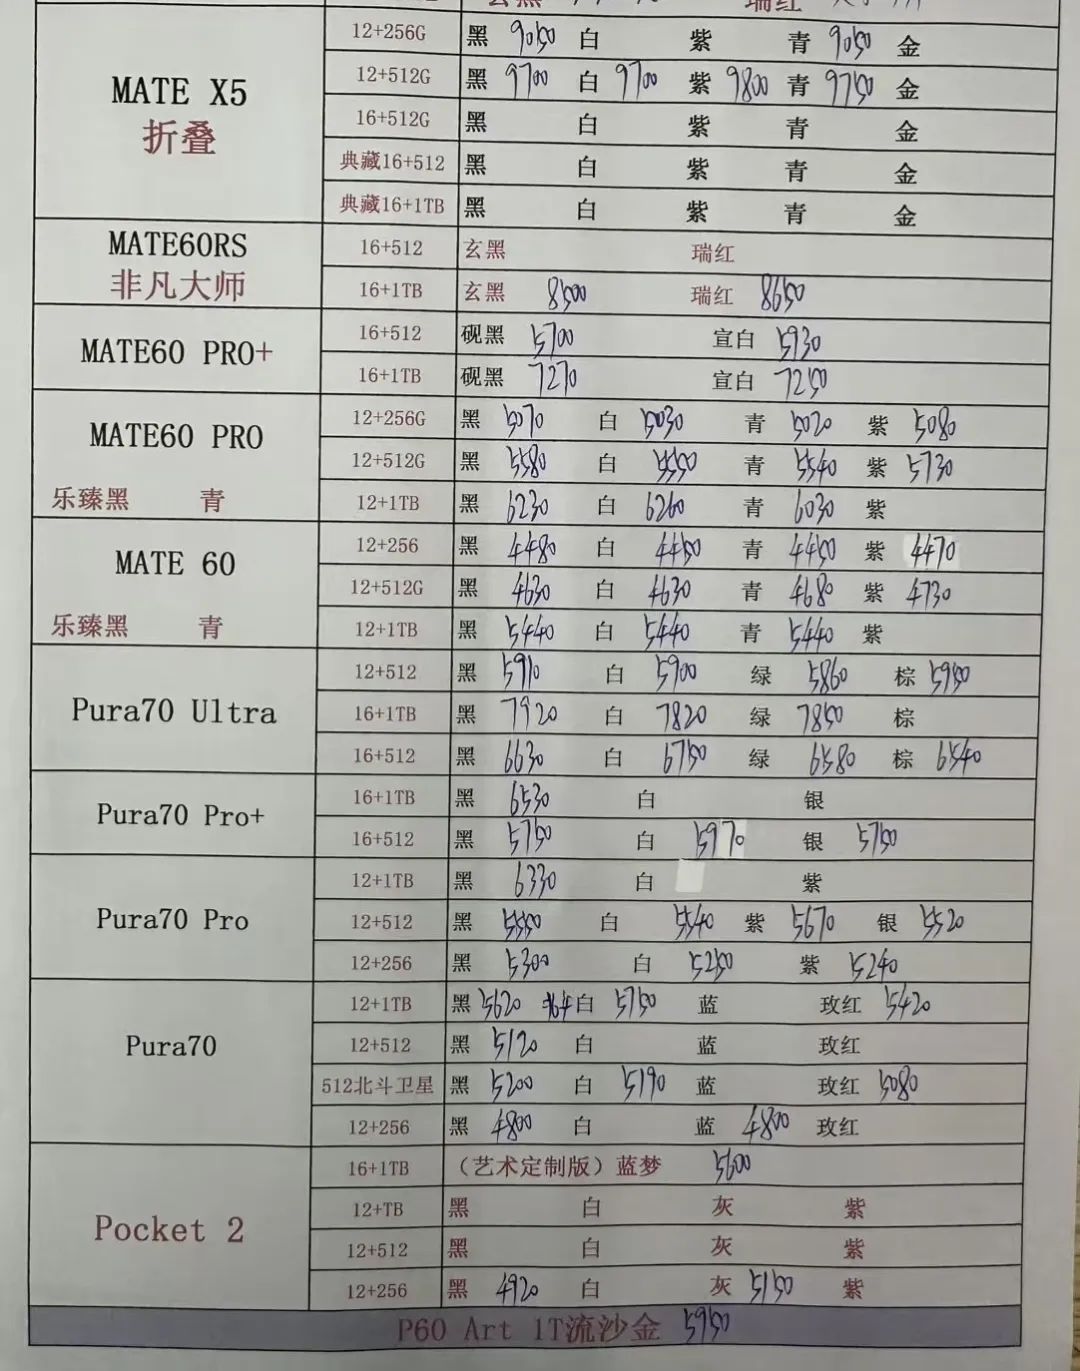 瑞红
MATE X5
折叠
12+256G 黑 9050 白 紫 青 9050 金
12+512G 黑 9700 白 9700 紫 9800 青 9750 金
16+512G 黑 白 紫 青 金
典藏16+512 黑 白 紫 青 金
典藏16+1TB 黑 白 紫 青 金
MATE60RS
非凡大师
16+512 玄黑 瑞红
16+1TB 玄黑 8500 瑞红 8650
MATE60 PRO+
16+512 砚黑 5700 宣白 5930
16+1TB 砚黑 7270 宣白 7250
MATE60 PRO
乐臻黑 青
12+256G 黑 5070 白 5030 青 5020 紫 5080
12+512G 黑 5580 白 5550 青 5540 紫 5730
12+1TB 黑 6230 白 6260 青 6030 紫
MATE 60
乐臻黑 青
12+256 黑 4480 白 4450 青 4450 紫 4470
12+512G 黑 4630 白 4630 青 4680 紫 4730
12+1TB 黑 5440 白 5440 青 5440 紫
Pura70 Ultra
12+512 黑 5910 白 5900 绿 5860 棕 5950
16+1TB 黑 7920 白 7820 绿 7850 棕
16+512 黑 6630 白 6750 绿 6580 棕 6540
Pura70 Pro+
16+1TB 黑 6530 白 银
16+512 黑 5750 白 5970 银 5750
Pura70 Pro
12+1TB 黑 6330 白 紫
12+512 黑 5550 白 5540 紫 5670 银 5520
12+256 黑 5300 白 5250 紫 5240
Pura70
12+1TB 黑 5620 白 5750 蓝 玫红 5420
12+512 黑 5120 白 蓝 玫红
512北斗卫星 黑 5200 白 5190 蓝 玫红 5080
12+256 黑 4800 白 蓝 4800 玫红
Pocket 2
16+1TB （艺术定制版）蓝梦 5600
12+TB 黑 白 灰 紫
12+512 黑 白 灰 紫
12+256 黑 4920 白 灰 5150 紫
P60 Art 1T流沙金 5950